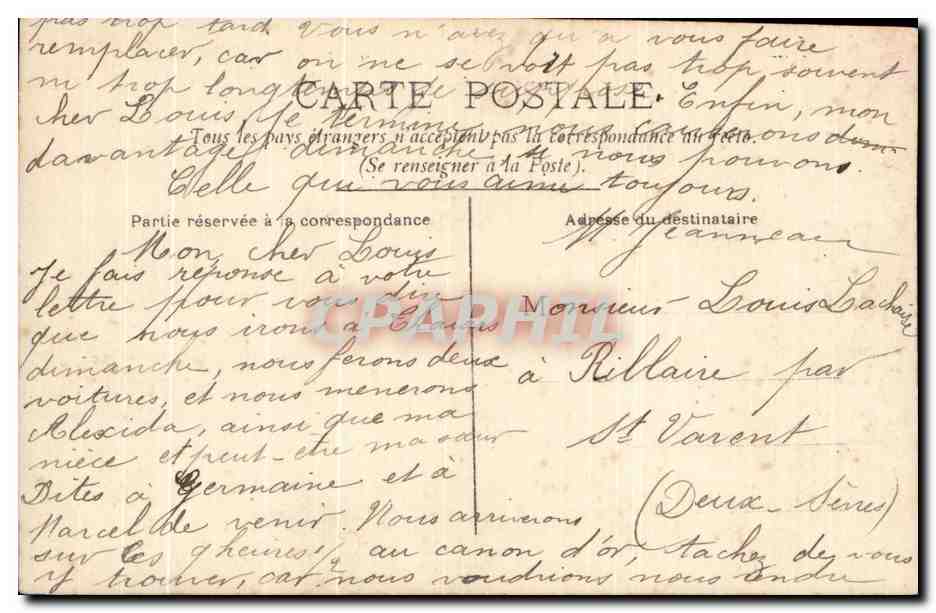 pas trop tard vous n'avez qu'à vous faire
remplacer, car on ne se voit pas trop souvent
ni trop longtemps de Enfin, mon
CARTE POSTALE
cher Louis, je termine nous causerons
Tous les pays étrangers n'acceptent pas la correspondance au recto.
davantage dimanche si nous pouvons.
(Se renseigner à la Poste).
Celle qui vous aime toujours.
M. Jeanneau
Partie réservée à la correspondance
Adresse du destinataire
Mon cher Louis
Je fais réponse à votre
lettre pour vous dire
que nous irons à Thouars
dimanche, nous ferons deux
voitures, et nous menerons
Alexida, ainsi que ma
nièce et peut-être ma sœur
Dites à Germaine et à
Marcel de venir. Nous arriverons
sur les 9 heures 1/2 au canon d'or, tachez de vous
y trouver, car nous voudrions nous rendre
Monsieur Louis Lachaise
à Rillaire par
St Varent
(Deux-Sèvres)
CPAPHIL